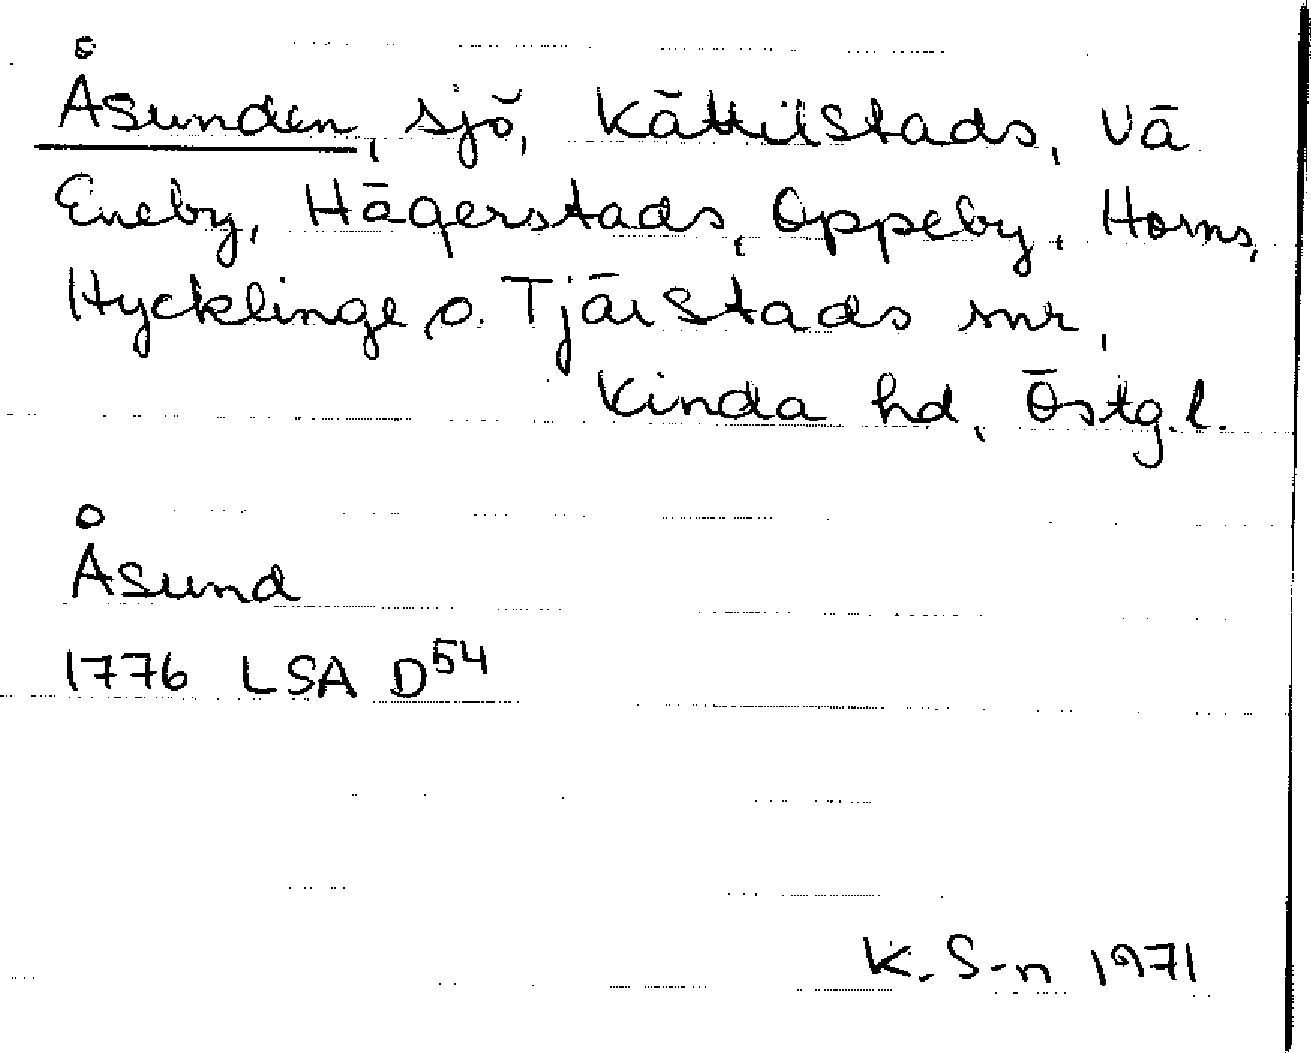 Åsunden, sjö, Kättilstads, Vä
Eneby, Hägerstads, Oppeby, Horns,
Hycklinge o. Tjärstads snr,
Kinda hd, Östg.l.
Åsund
1776 LSA D54
K. S-n 1971